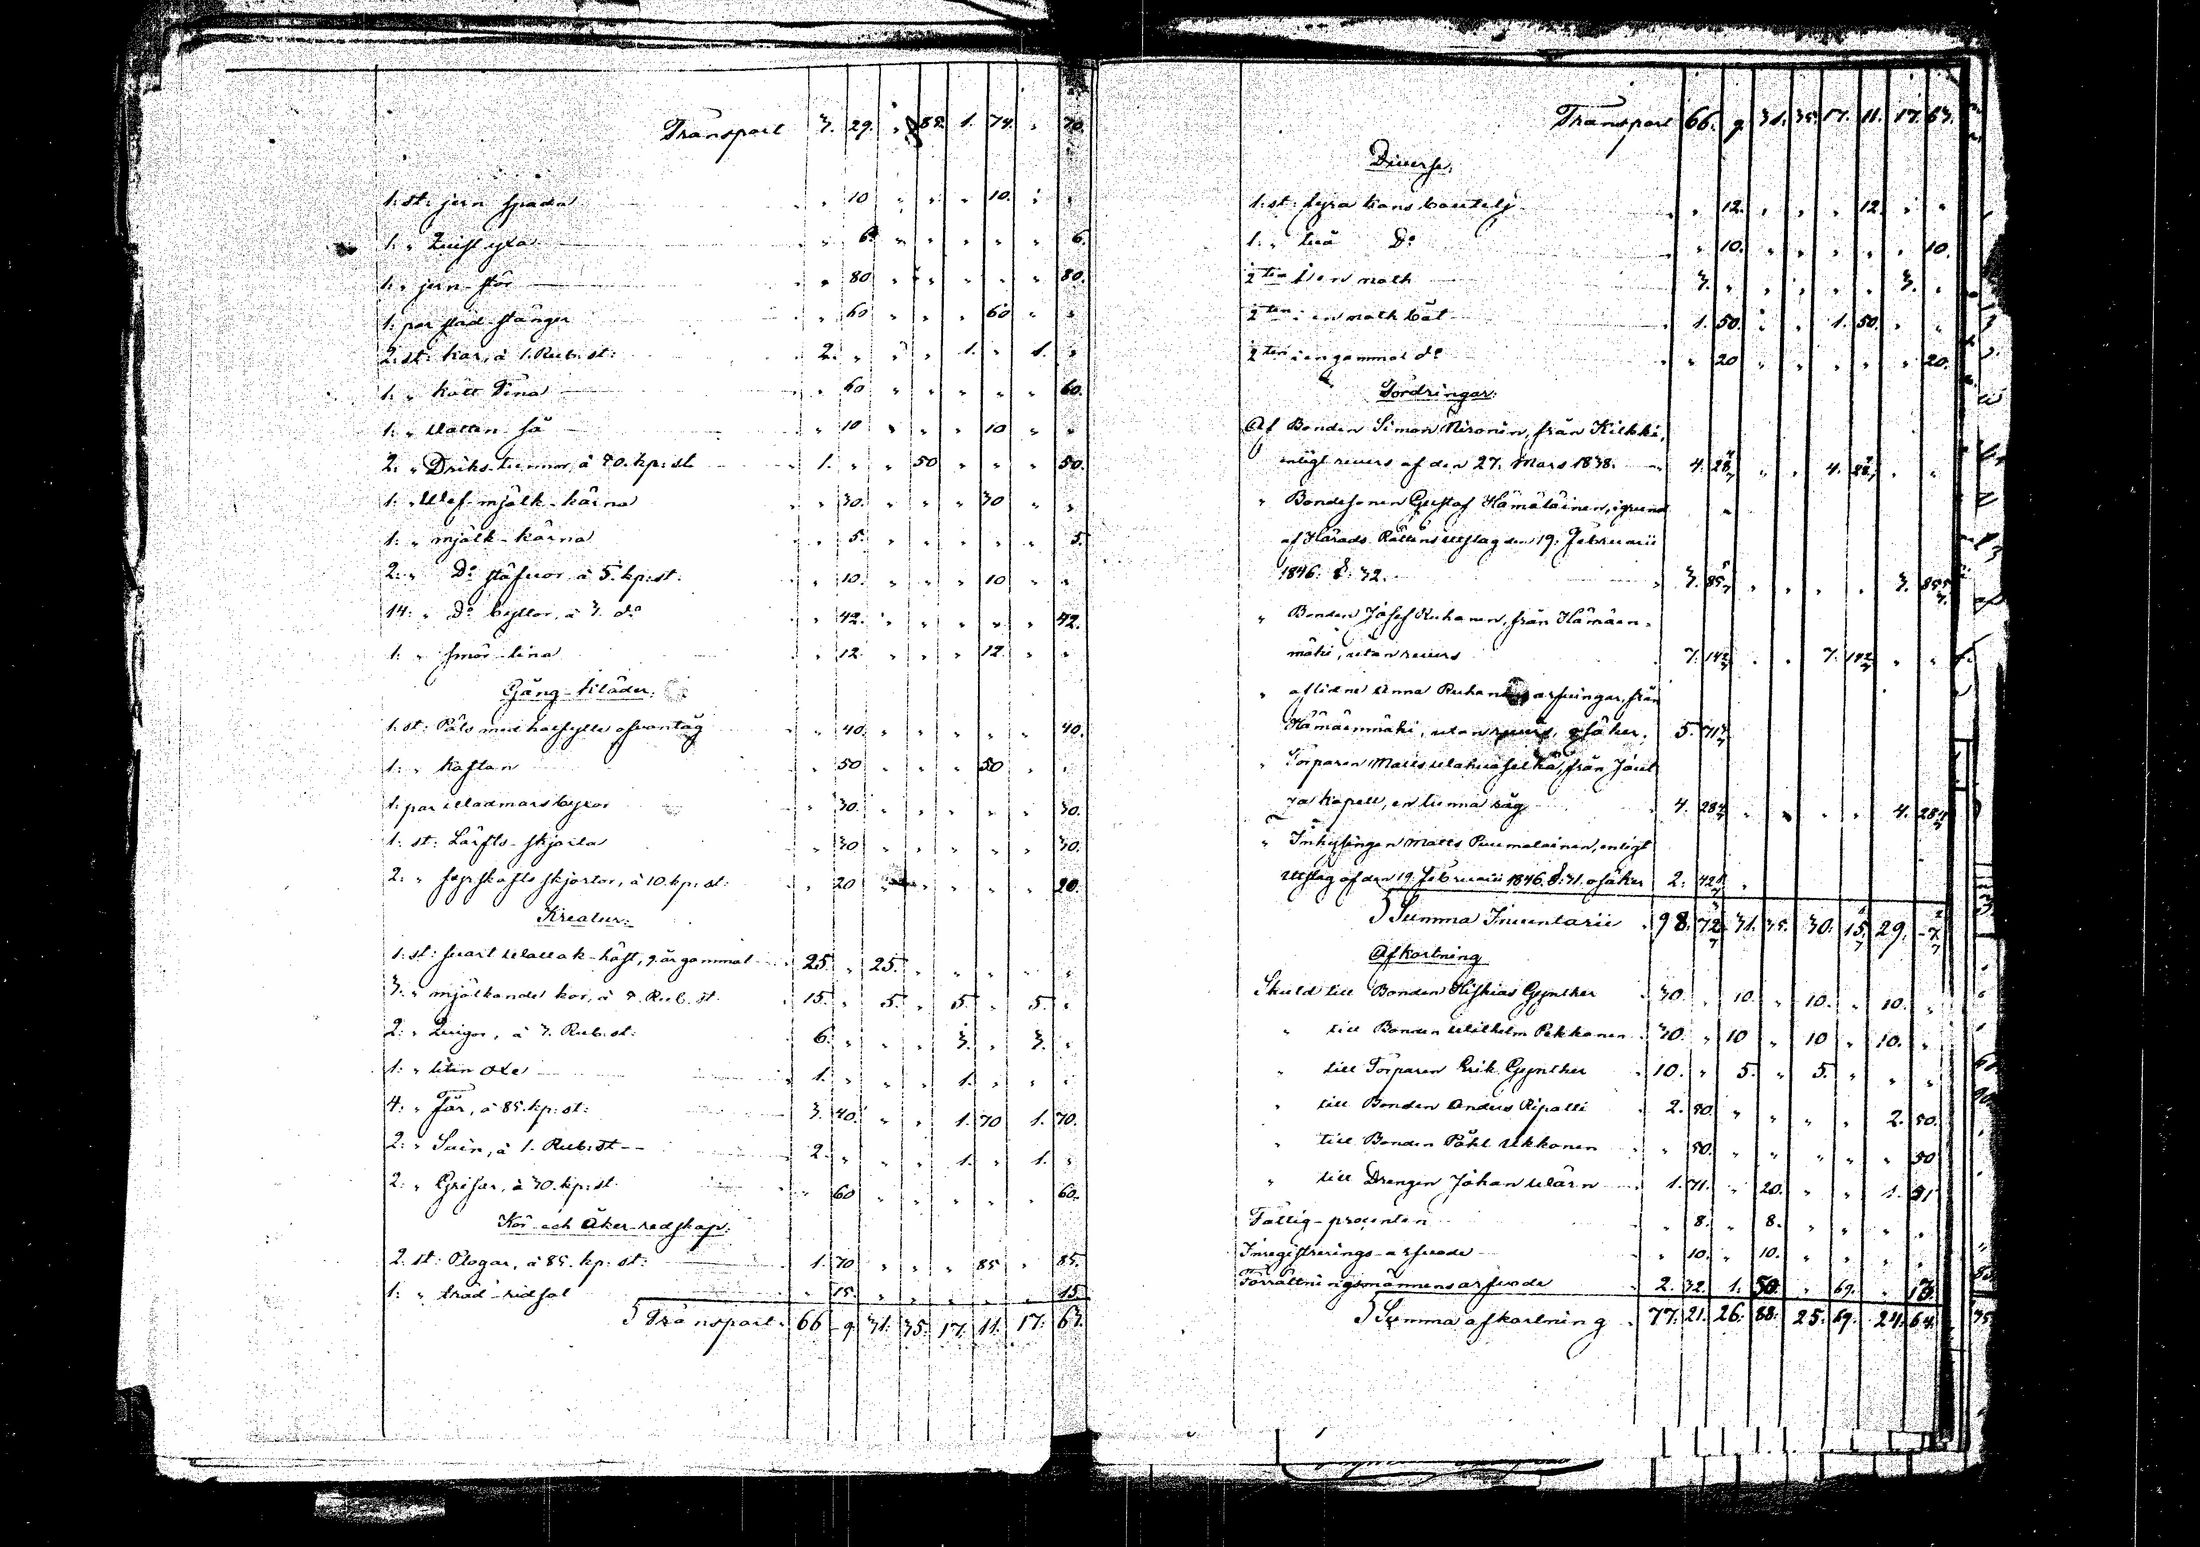 Transport 3. 29. " 85. 1. 74. " 70.
1. st: jern spada " 10 " " " 10. " "
1. " Quist yxa " 6. " " " " " 6.
1. " jern stör " 80 " " " " " 80.
1. par stänger " 60 " " " 60 " "
2. st: kar, à 1. Rub. st: 2. " " " 1. " 1. "
1. " kått tina " 60 " " " " " 60.
1. " Vatten så " 10 " " " 10 " "
2. " Driks-tunnor, à 50. kp: st 1. " " 50 " " " 50.
1. " mjölk-kärna " 30. " " " 30 " "
1. " mjölk-kärna " 5. " " " " " 5.
2. " Do stäfvor à 5. kp: st: " 10. " " " 10 " "
14: " Do byttor, à 3. do " 42. " " " " " 42.
1. " smör-tina " 12. " " " 12. " "
Gång-kläder:
1. st: Päls med ofvantåg " 40. " " " " " 40.
1. " kaftan " 50 " " " 50 " "
1. par vadmars byxor " 30. " " " " " 30.
1. st: Lärfts-skjorta " 30 " " " " " 30.
2. " skjortor, à 10. kp: st: " 20 " " " " " 20.
Kreatur:
1. st: svart vallack-häst, 9. år gammal 25. " 25. " " " " "
3. " mjölkande kor, à 5. Rub. st. 15. " 5. " 5. " 5. "
2. " Quigor, à 3. Rub: st: 6. " " " 3. " 3. "
1. " liten oxe 1. " " " 1. " " "
4. " Får, à 85. kp: st: 3. 40. " " 1. 70 1. 70.
2. " Svin, à 1. Rub: st 2. " " " 1. " 1. "
2. " Grisar, à 30. kp: st. " 60 " " " " " 60.
Kör- och Åker-redskap:
2. st: Plogar, à 85. kp: st: 1. 70 " " " 85 " 85.
1. " träd-ridsol " 15. " " " " " 15
Transport. 66 9. 31. 35. 17. 11. 17. 63.
Transport 66. 9. 31. 35. 17. 11. 17. 63.
Diverse.
1. st: fyra kans bouteilj " 12. " " " 12. " "
1. " två Do " 10. " " " " " 10.
i en noth 3. " " " " " 3. "
i en noth båt 1. 50. " " 1. 50. " "
i en gammal do " 20 " " " " " 20.
Fordringar:
Af Bonden Simon Nironen, från Kilkki,
enligt revers af den 27. Mars 1838. 4. 28 4/7 " " 4. 28 4/7 " "
" Bondesonen Gustaf Hämäläinen, i grund
af Härads Rättens Utslag den 19. Februarii
1846. §: 32. 3. 85 5/7 " " " " 3. 85 5/7
" Bonden Josef Ruhanen, från Hämäen-
mäki, utan revers 7. 14 2/7 " " 7. 14 2/7 " "
" aflidne Anna Ruhanens arfvingar, från
Hämäenmäki, utan revers, osäker. 5. 71 3/7
" Torparen Matts, från
Kapell, en tunna råg 4. 28 4/7 " " " " 4. 28 4/7
" Inhysingen Matts Puumalainen, enligt
Utslag af den 19. Februarii 1846. §: 31. osäker 2. 42 6/7 "
Summa Inventarii 98. 72 31. 35. 30. 15 29.
Afkortning
Skuld till Bonden Hiskias Gynther 30. " 10. " 10. " 10. "
" till Bonden Wilhelm Pekkonen 30. " 10 " 10 " 10. "
" till Torparen Erik Gynther 10. " 5. " 5. " " "
" till Bonden Anders Ripatti 2. 50. " " " " 2. 50.
" till Bonden Påhl Ukkonen " 50. " " " " " 50
" till Drengen Johan 1. 71. " 20. " " 1. 51
Fattig-procenten " 8. " 8. " " " "
Inregistrerings-arfvode " 10. " 10. " " " "
Förrättningsmännens arfvode 2. 32. 1. 50. " 69. " 13.
Summa afkortning 77. 21. 26. 88. 25. 69. 24. 64.